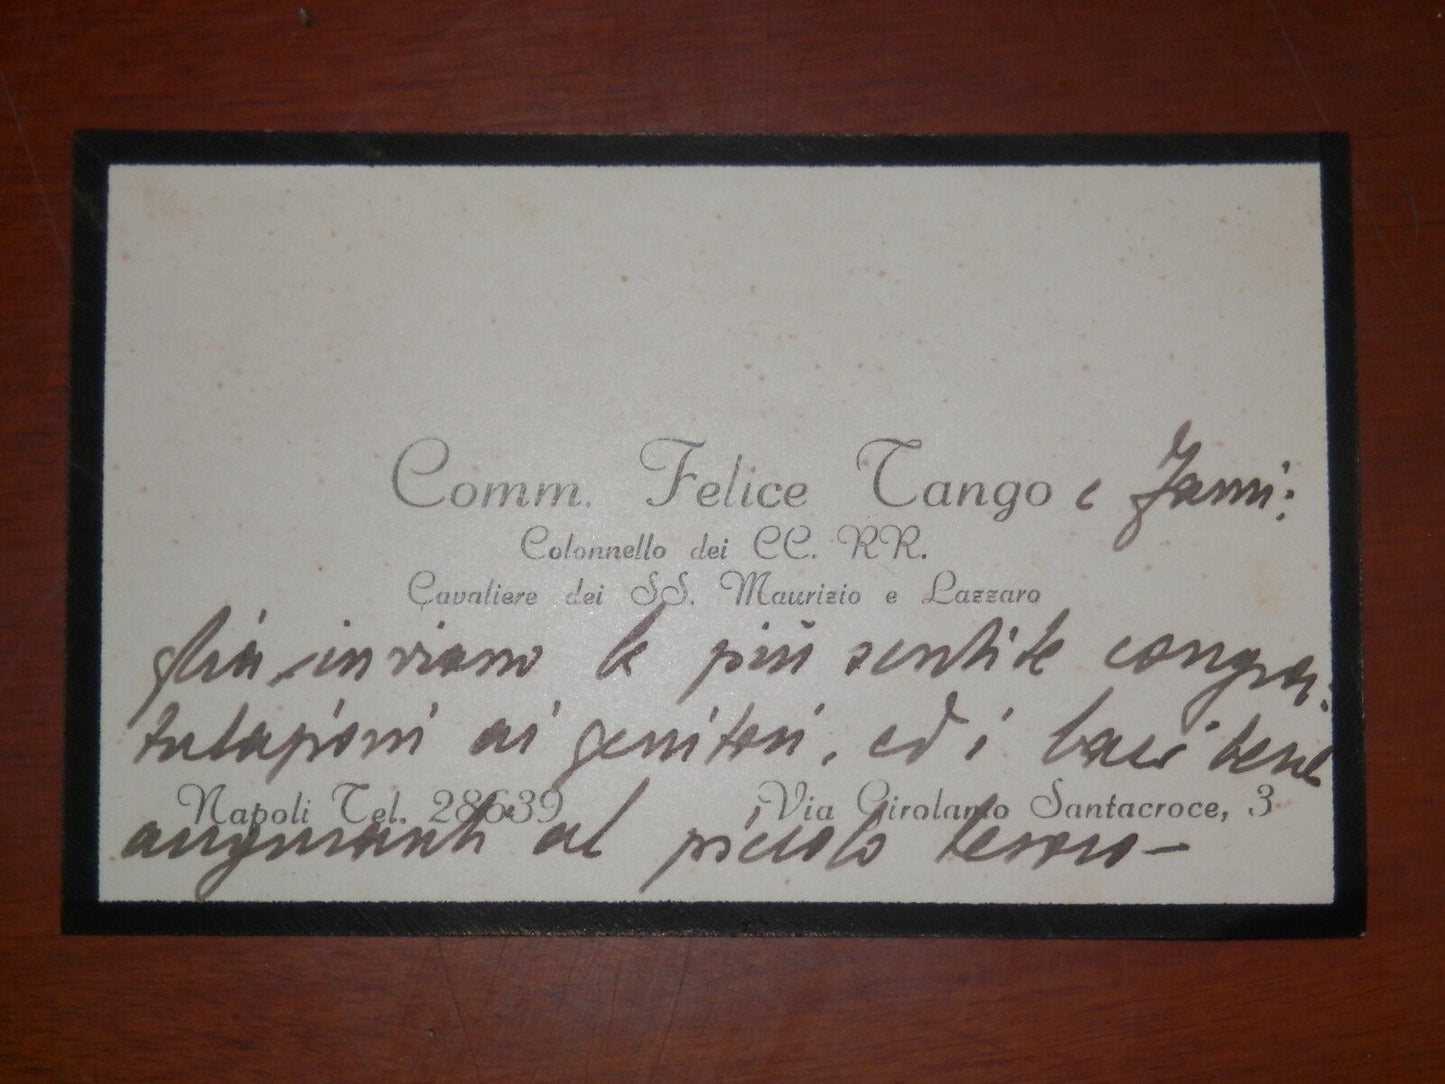 Comm. Felice Tango e Fami:
Colonnello dei CC. RR.
Cavaliere dei SS. Maurizio e Lazzaro
glia inviano le più sentite congra:
tulazioni ai genitori, ed i baci bene
Napoli Tel. 28639 Via Girolamo Santacroce, 3
auguranti al piccolo tesoro —